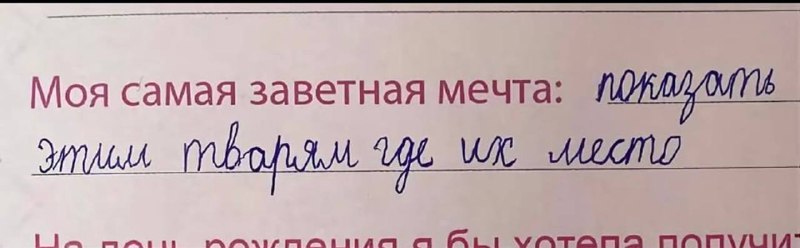 Моя самая заветная мечта: показать
этим тварям где их место
На день рождения я бы хотела получит